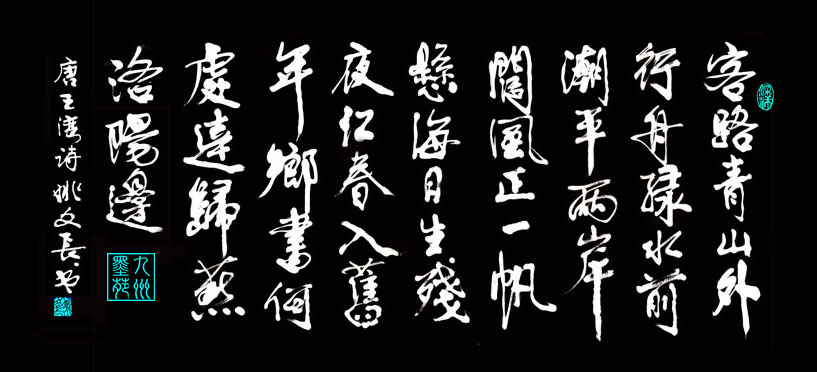 客路青山外
行舟绿水前
潮平兩岸
闊風正一帆
懸海日生殘
夜江春入舊
年鄉書何
處達歸燕
洛陽邊
九州墨苑
唐王湾诗姚文長书